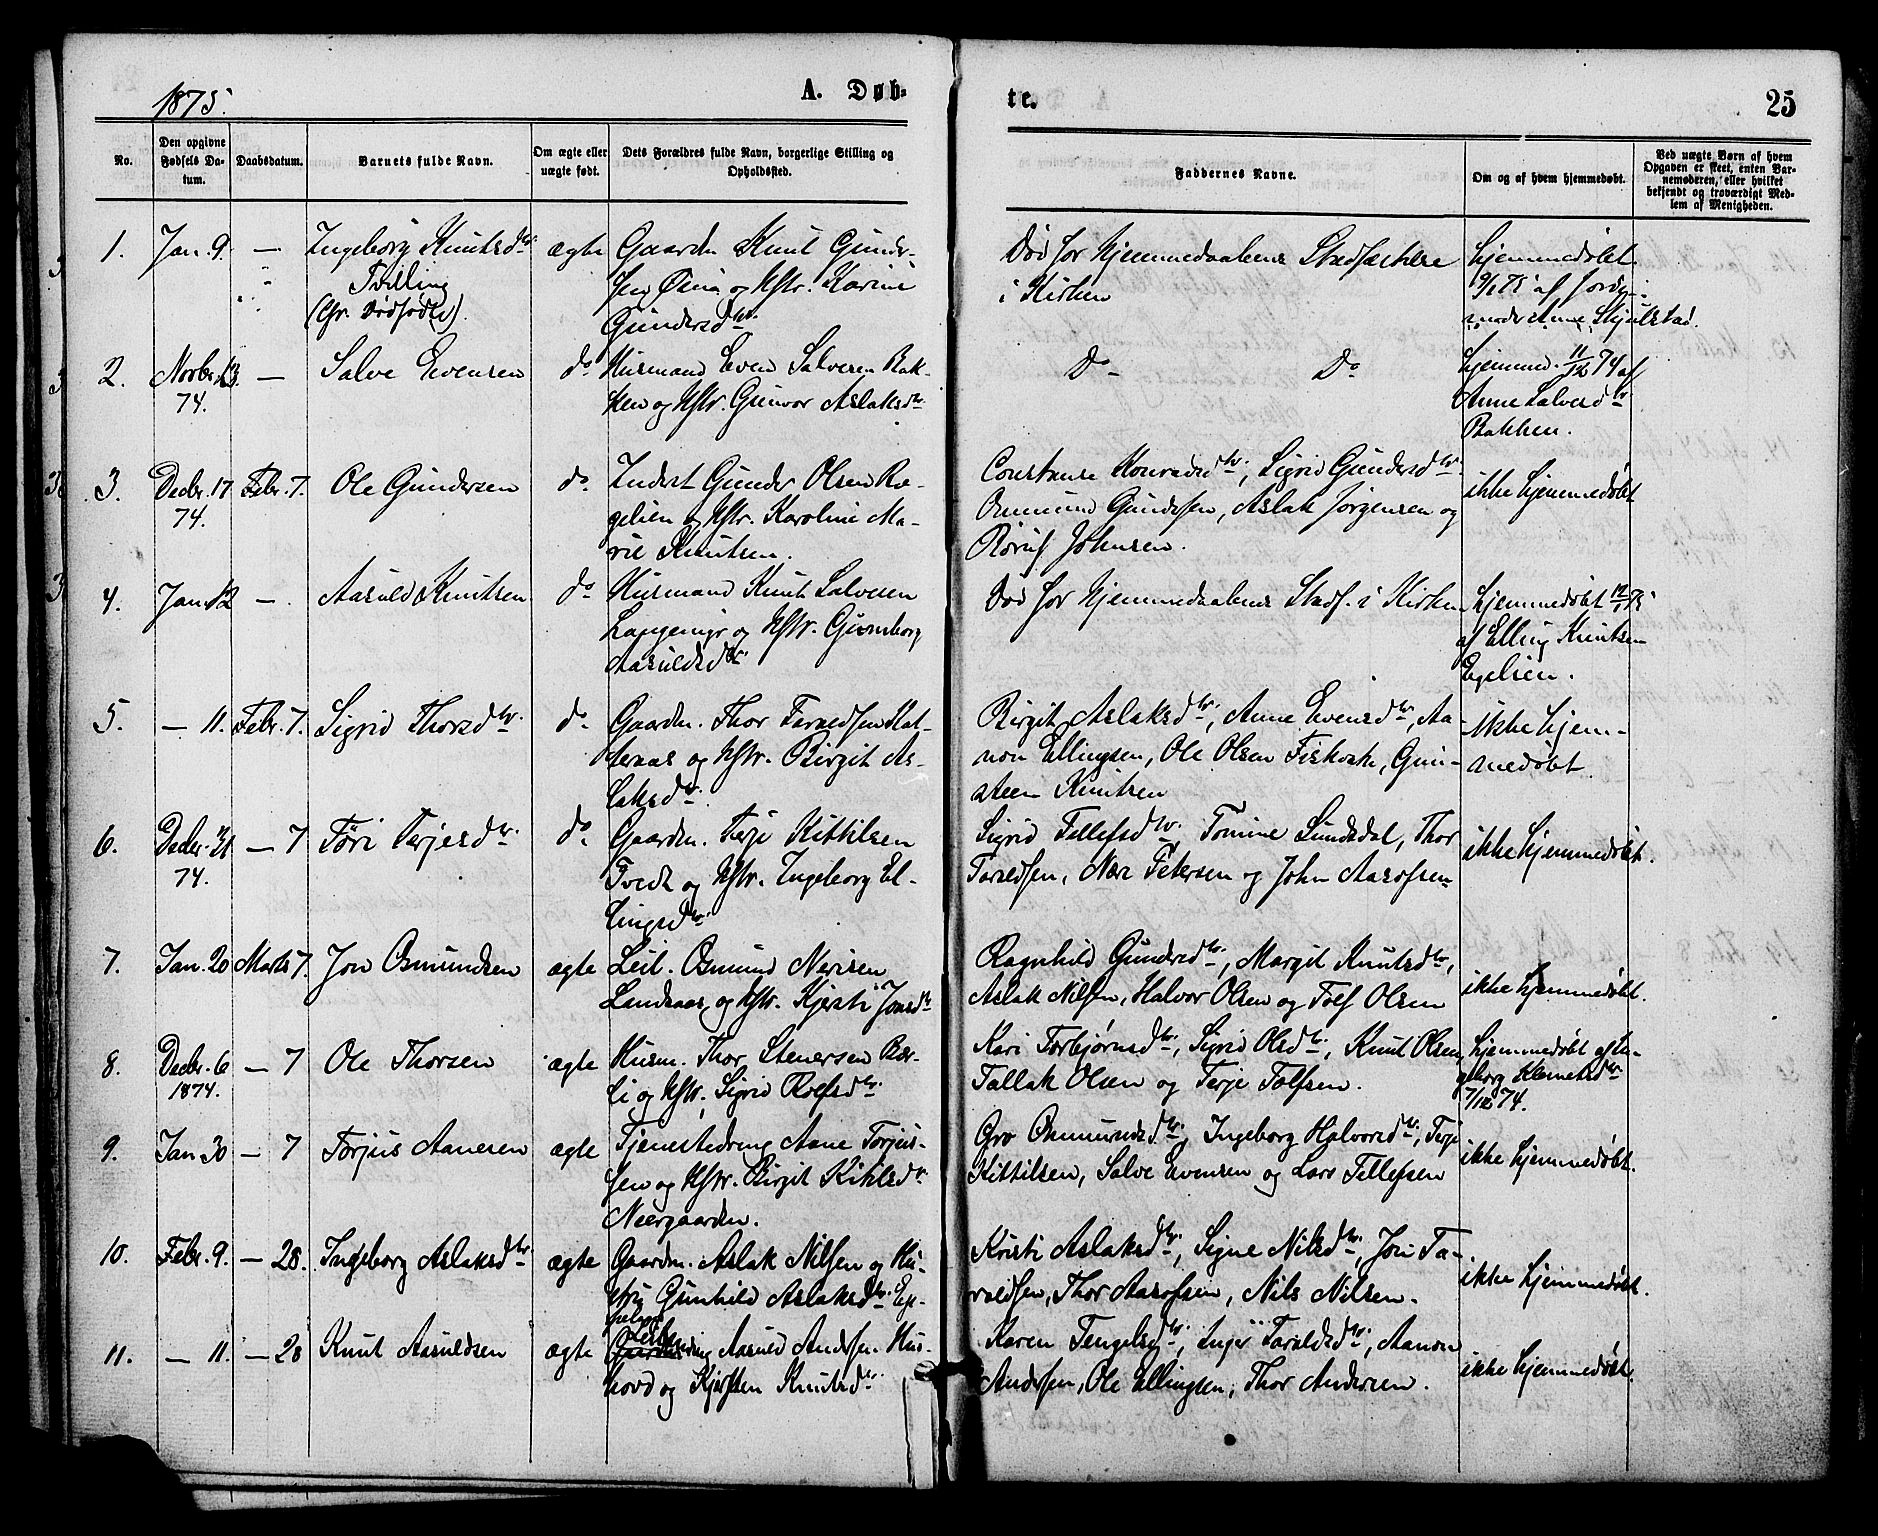 1875.
A. Døb-
te.
25
No.
Den opgivne
Fødsels Da-
tum.
Daabsdatum.
Barnets fulde Navn.
Om ægte eller
uægte født.
Dets Forældres fulde Navn, borgerlige Stilling og
Opholdssted.
Faddernes Navne.
Om og af hvem hjemmedøbt.
Ved uægte Børn af hvem
Opgaven er skeet, enten Bar-
nemoderen, eller hvilket
bekjendt og troværdigt Med-
lem af Menigheden.
1.
Jan. 9
—
Ingeborg Knutsdtr.
Tvilling
(Gr. Dødfødte).
ægte
Gaardm. Knut Gunder-
sen og Hstr. Karine
Gundersdtr.
Død før Hjemmedaabens Stadfæstelse
i Kirken
hjemmedøbt
9/1 75 af Jorde-
moder Anne Skjulstad.
2.
Novbr. 13.
74.
—
Salve Evensen
do
Husmand Even Salvesen Bak-
ken og Hstr. Gunvor Aslaksdtr.
Do
Do
hjemmed. 11/12 74 af
Anne Salvesdtr
Bakken.
3.
Decbr. 17
74.
Febr. 7.
Ole Gundersen
do
Inderst Gunder Olsen
og Hstr. Karoline Ma-
rie Knutsen.
Constanse Konradsdtr., Sigrid Gundersdtr.
Osmund Gundersen, Aslak Jørgensen og
Johnsen.
ikke hjemmedøbt
4.
Jan. 12
—
Aasuld Knutsen
do
Husmand Knut Salvesen
og Hstr. Gunborg
Aasuldsdtr.
Død før Hjemmedaabens Stadf. i Kirken
hjemmedøbt 12/1 75
af Elling Knutsen
5.
— 11.
Febr. 7.
Sigrid Thorsdtr.
do
Gaardm. Thor Taraldsen Kat-
teraas og Hstr. Birgit As-
laksdtr.
Birgit Aslaksdtr., Anne Evensdtr., Aa-
non Ellingsen, Ole Olsen Fiskvatn, Gun-
steen Knutsen
ikke hjem-
medøbt.
6.
Decbr. 21
74.
— 7
Tøri Terjesdtr.
do
Gaardm. Terje Kittilsen
Tvedt og Hstr. Ingeborg El-
lingsdtr.
Sigrid Tellefsdtr., Tomine Lundsdal, Thor
Taraldsen, Neri Petersen og John Aasofsen
ikke hjemmedøbt.
7.
Jan. 20
Marts 7.
Jon Osmundsen
ægte
Leil. Osmund Nerisen
Landsaas og Hstr. Kjersti Jonsdtr
Ragnhild Gundersdtr., Margit Knutsdtr.,
Aslak Nilsen, Halvor Olsen og Tolf Olsen
ikke hjemmedøbt.
8.
Decbr. 6
1874.
— 7
Ole Thorsen
ægte
Husm. Thor Stenersen Bær-
li og Hstr. Sigrid Rolfsdtr.
Kari Torbjørnsdtr., Sigrid Olsdtr., Knut Olsen,
Tallak Olsen og Terje Tolfsen.
hjemmedøbt af In-
geborg Klemetsdtr
7/12 74.
9.
Jan 30
— 7
Torjus Aanesen
ægte
Tjenestedreng Aane Torjus-
sen og Hstr. Birgit Kittilsdtr.
Neergaarden.
Gro Osmundsdtr., Ingeborg Halvorsdtr., Terje
Kittilsen, Salve Evensen og Lars Tellefsen
ikke hjemmedøbt.
10.
Febr. 9.
— 28.
Ingeborg Aslaksdtr.
ægte
Gaardm. Aslak Nilsen og Hu-
stru Gunhild Aslaksdtr.
Kristi Aslaksdtr., Signe Nilsdtr., Jon Ta-
raldsen, Thor Aasofsen, Nils Nilsen.
ikke hjemmedøbt.
11.
— 11.
— 28
Knut Aasuldsen
ægte
Aasuld Andersen Hus-
hovd og Kjersten Knutsdtr.
Karen Tengelsdtr., Inger Taraldsdtr., Aanon
Andersen, Ole Ellingsen, Thor Andersen.
ikke hjemmedøbt.